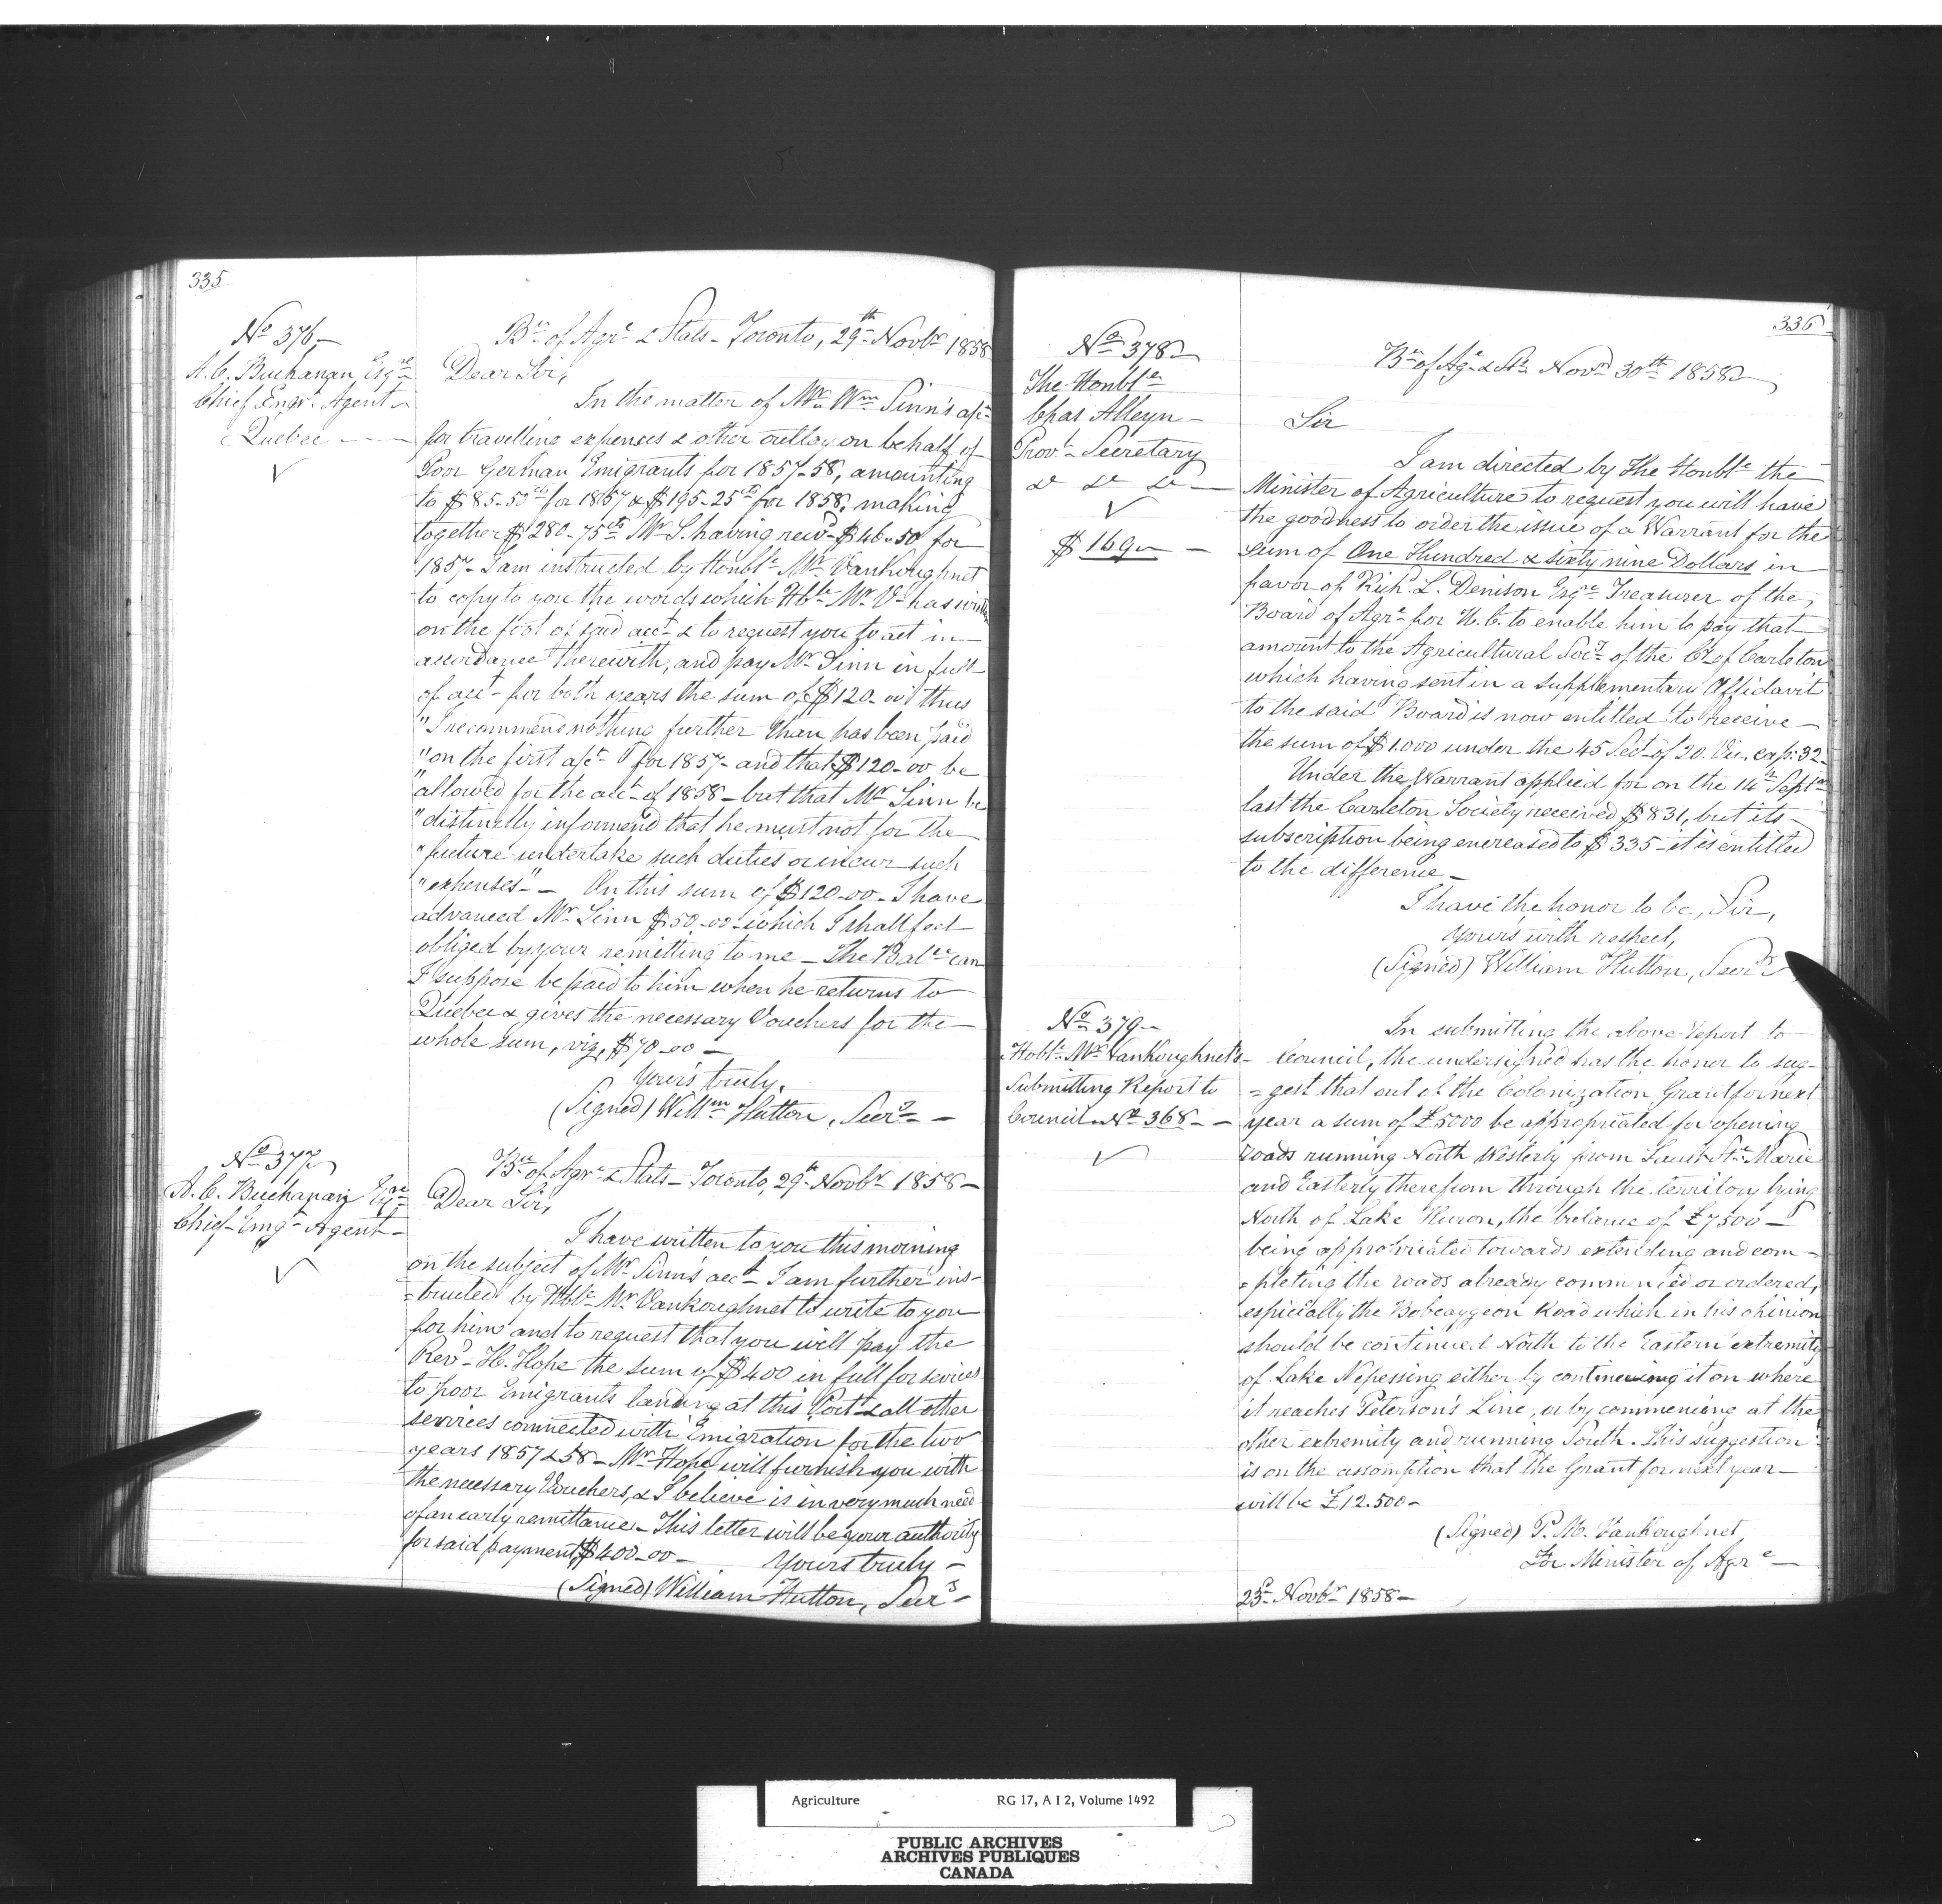 335
No 376
A. C. Buchanan Esqre
Chief Emgr. Agent
Quebec
Bu of Agre & Stats - Toronto, 29th Novbr 1858
Dear Sir,
In the matter of Mr Wm Sinn's a/ct
for travelling expences & other outlay on behalf of
Poor German Emigrants for 1857-58, amounting
to $85-50cts for 1857 & $195-25cts for 1858, making
together $280-75cts Mr S. having recd $46-50 for
1857 - I am instructed by Honble Mr VanKoughnet
to copy to you the words which Hble Mr V- has written
on the foot of said acct & to request you to act in
accordance therewith, and pay Mr Sinn in full
of acct for both years the sum of $120-00 thus
"I recommend nothing further than has been paid
"on the first a/ct for 1857 - and that $120-00 be
"allowed for the acct of 1858 - but that Mr Sinn be
"distinctly informed that he must not for the
"future undertake such duties or incur such
"expenses" - On this sum of $120-00 - I have
advanced Mr Sinn $50-00 - which I shall feel
obliged by your remitting to me - The Balce can
I suppose be paid to him when he returns to
Quebec & gives the necessary Vouchers for the
whole sum, viz, $70-00 -
Yours truly,
(Signed) Willm Hutton, Secry -
No 377
A. C. Buchanan Esqre
Chief Emgt Agent -
Bu of Agre & Stats - Toronto, 29th Novbr 1858 -
Dear Sir,
I have written to you this morning
on the subject of Mr Sinn's acct - I am further ins-
=tructed by Hble Mr Vankoughnet to write to you
for him and to request that you will pay the
Revd - H. Hope the sum of $400 in full for services
to poor Emigrants landing at this Port & all other
services connected with Emigration for the two
years 1857 & 58 - Mr Hope will furnish you with
the necessary Vouchers, & I believe is in very much need
of an early remittance - This letter will be your authority
for said payment $400-00 - Yours truly -
(Signed) William Hutton, Secry -
336
No 378
The Honble
Chas Alleyn -
Provl - Secretary
&c &c &c -
$169 -
Bu of Agre & Sts Novr 30th 1858
Sir
I am directed by the Honble the
Minister of Agriculture to request you will have
the goodness to order the issue of a Warrant for the
sum of One Hundred & sixty nine Dollars in
favor of Richd L. Denison Esqre Treasurer of the
Board of Agre for U. C. to enable him to pay that
amount to the Agricultural Socy of the Cy of Carleton
which having sent in a supplementary Affidavit
to the said Board is now entitled to receive
the sum of $1.000 under the 45 Sect of 20. Vic. cap: 32 -
Under the Warrant applied for on the 14th Septr
last the Carleton Society received $831, but its
subscription being encreased to $335 - it is entitled
to the difference -
I have the honor to be, Sir,
Yours with respect,
(Signed) William Hutton, Secry
No 379 -
Hoble Mr VanKoughnet's -
Submitting Report to
Council No 368 -
In submitting the above report to
Council, the undersigned has the honor to sug-
=gest that out of the Colonization Grant for next
year a sum of £5000 be appropriated for opening
roads running North Westerly from Sault Ste Marie
and Easterly therefrom through the territory lying
North of Lake Huron, the balance of £7500 -
being appropriated towards extending and com-
=pleting the roads already commenced or ordered,
especially the Bobcaygeon Road which in his opinion
should be continued North to the Eastern extremity
of Lake Nipessing either by continueing it on where
it reaches Peterson's Line, or by commencing at the
other extremity and running South. This suggestion
is on the assomption that the Grant for next year -
will be £12.500 -
(Signed) P. M. VanKoughnet
For Minister of Agre -
25th Novbr 1858 -
Agriculture RG 17, A I 2, Volume 1492
PUBLIC ARCHIVES
ARCHIVES PUBLIQUES
CANADA